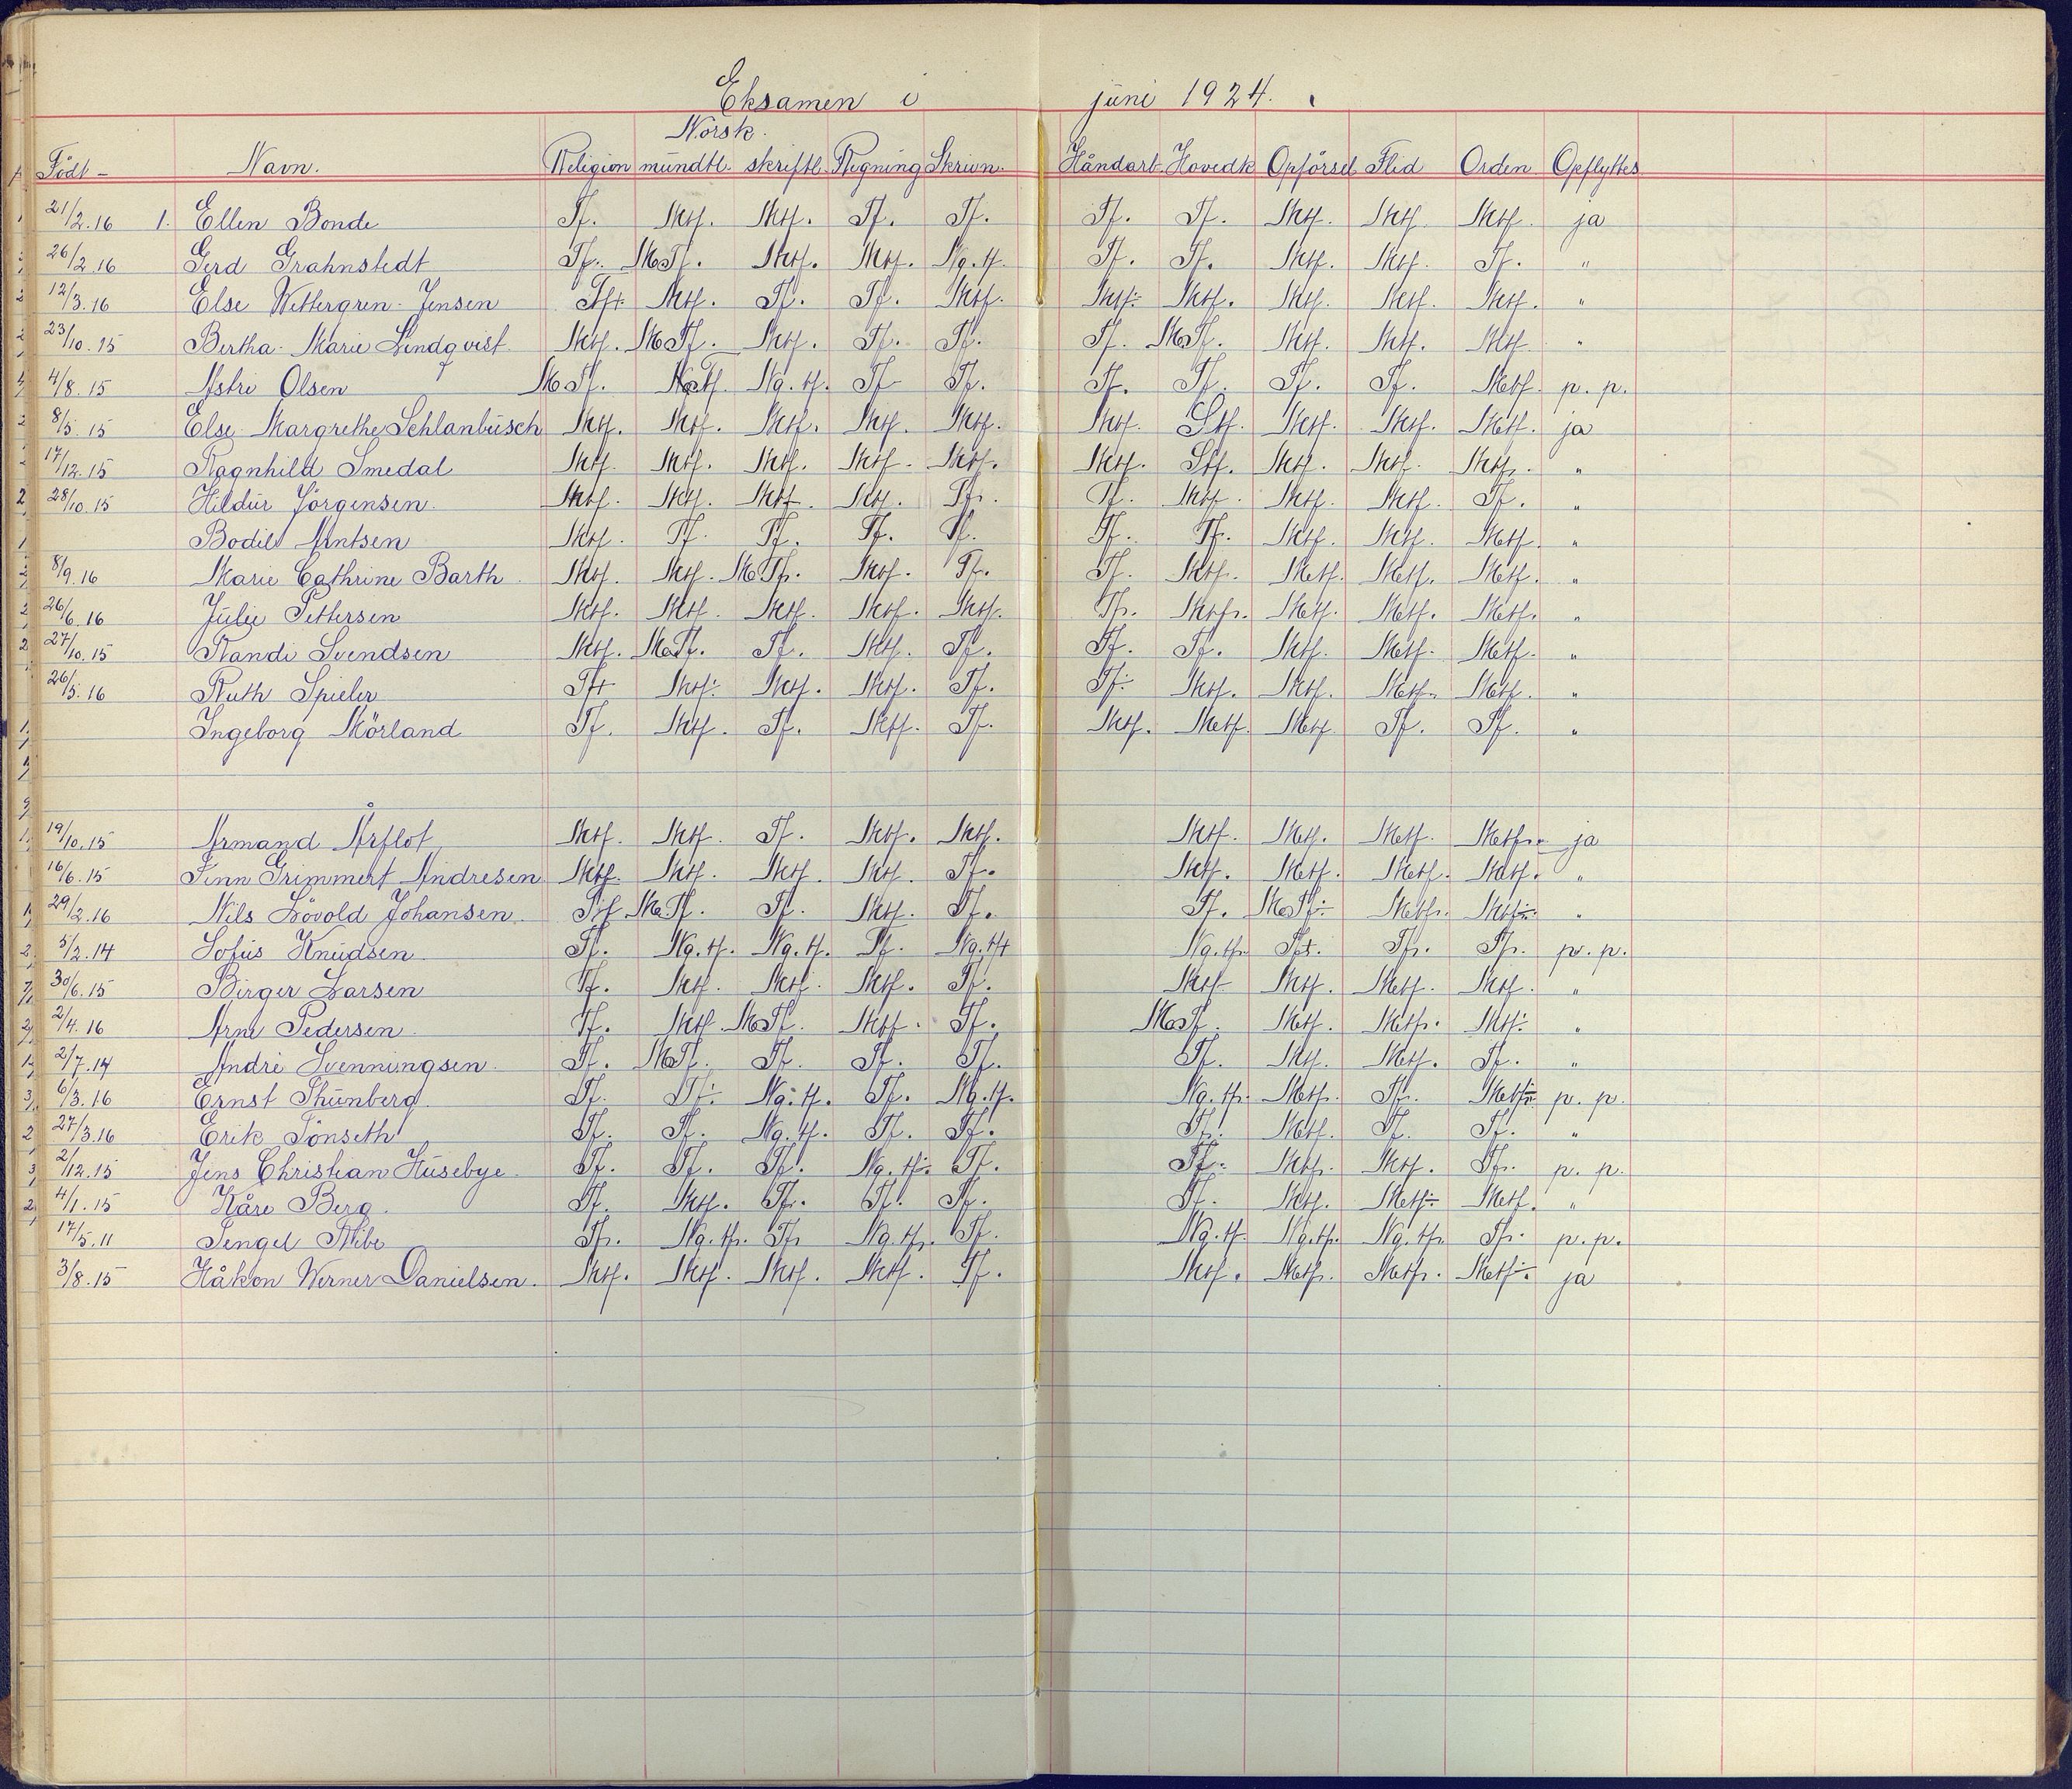 Eksamen i juni 1924.
Norsk.
Födt - Navn. Religion mündtl. skriftl. Regning Skrivn. Håndarb. Hovedk Opförsel Flid Orden Opflyttes
21/2.16 1. Ellen Bonde Tf. Mtf. Mtf. Tf. Tf. Tf. Tf. Mtf. Mtf. Mtf. ja
26/2.16 Gerd Grahnstedt Tf. MoTf. Mtf. Mtf. Ng.tf. Tf. Tf. Mtf. Mtf. Tf. "
12/3.16 Else Wettergren-Jensen Tf+ Mtf. Tf. Tf. Mtf. Mtf÷ Mtf. Mtf. Mtf. Mtf. "
23/10.15 Bertha-Marie Lindqvist Mtf. MoTf. Mtf. Tf. Tf. Tf. MoTf. Mtf. Mtf. Mtf. "
4/8.15 Astri Olsen MoTf. MoTf. Ng.tf. Tf Tf. Tf. Tf. Tf. Tf. Metf. p.p.
8/5.15 Else Margrethe Schlanbüsch Mtf. Mtf. Mtf. Mtf. Mtf. Mtf. Stf. Metf. Mtf. Metf. ja
17/12.15 Ragnhild Smedal Mtf. Mtf. Mtf. Mtf. Mtf. Mtf. Stf. Mtf. Mtf. Mtf. "
28/10.15 Hildür Jörgensen Mtf. Mtf. Mtf. Mtf. Tf. Tf. Mtf. Mtf. Mtf. Tf. "
Bodil Arntsen Mtf. Tf. Tf. Tf. Tf. Tf. Tf. Metf. Metf. Metf. "
8/9.16 Marie Cathrine Barth Mtf. Mtf. MoTf. Mtf. Tf. Tf. Mtf. Metf. Metf. Metf. "
26/6.16 Julie Pettersen Mtf. Mtf. Mtf. Mtf. Mtf. Tf. Mtf. Metf. Metf. Metf. "
27/10.15 Randi Svendsen Mtf. MoTf. Tf. Mtf. Tf. Tf. Tf. Mtf. Metf. Metf. "
26/5.16 Ruth Spieler Tf+ Mtf÷ Mtf. Mtf. Tf. Tf÷ Mtf. Mtf. Metf. Metf. "
Ingeborg Mörland Tf. Mtf. Tf. Mtf. Tf. Mtf. Metf. Metf Tf. Tf. "
19/10.15 Armand Årflot Mtf. Mtf. Tf. Mtf. Mtf. Mtf. Metf. Metf. Metf. ja
16/6.15 Finn Grimmert Andresen Mtf. Mtf. Mtf. Mtf. Tf. Mtf. Metf. Metf. Metf. "
29/2.16 Nils Lövold Johansen MoTf. Tf. Mtf. Tf. Tf. MoTf÷ Metf. Mtf÷ "
5/2.14 Sofus Knüdsen Tf. Ng.tf. Ng.tf. Tf. Ng.tf+ Ng.tf. Tf+. Tf. Tf. p.p.
30/6.15 Birger Larsen Tf. Mtf. Mtf. Mtf. Tf. Mtf Mtf. Metf. Mtf. "
2/4.16 Arne Pedersen Tf. Mtf. MoTf. Mtf. Tf. MoTf. Metf. Metf. Mtf÷ "
2/7.14 André Svenningsen Tf. MoTf. Tf. Tf. Tf. Tf. Mtf. Metf. Tf. "
6/3.16 Ernst Thünberg Tf. Tf÷ Ng.tf. Tf. Ng.tf. Ng.tf. Metf. Tf. Metf÷ p.p.
27/3.16 Erik Tönseth Tf. Tf. Ng.tf. Tf. Tf. Tf. Metf. Tf. Tf. "
2/12.15 Jens Christian Hüsebye Tf. Tf. Tf. Ng.tf÷ Tf. Tf. Mtf. Mtf. Tf. p.p.
4/1.15 Kåre Berg Tf. Mtf. Tf. Tf. Tf. Tf. Mtf. Metf÷ Metf. "
17/5.11 Tengel Ribe Tf. Ng.tf. Tf Ng.tf. Tf. Ng.tf. Ng.tf. Ng.tf. Tf. p.p.
3/8.15 Håkon Werner Danielsen. Mtf. Mtf. Mtf. Mtf. Tf. Mtf. Metf. Metf. Metf÷ ja